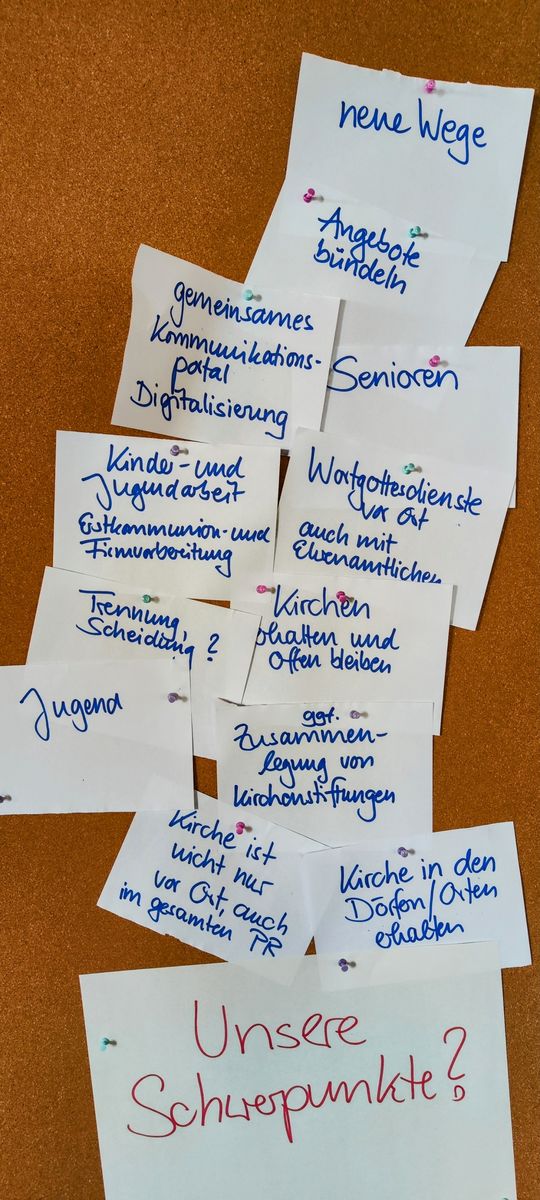 neue Wege
Angebote
bündeln
gemeinsames
Kommunikations-
portal
Digitalisierung
Senioren
Kinder- und
Jugendarbeit
Erstkommunion- und
Firmvorbereitung
Wortgottesdienste
vor Ort
auch mit
Ehrenamtlichen
Trennung,
Scheidung?
Kirchen
erhalten und
offen bleiben
Jugend
ggf.
Zusammen-
legung von
Kirchenstiftungen
Kirche ist
nicht nur
vor Ort, auch
im gesamten PR
Kirche in den
Dörfern/Orten
erhalten
Unsere
Schwerpunkte?